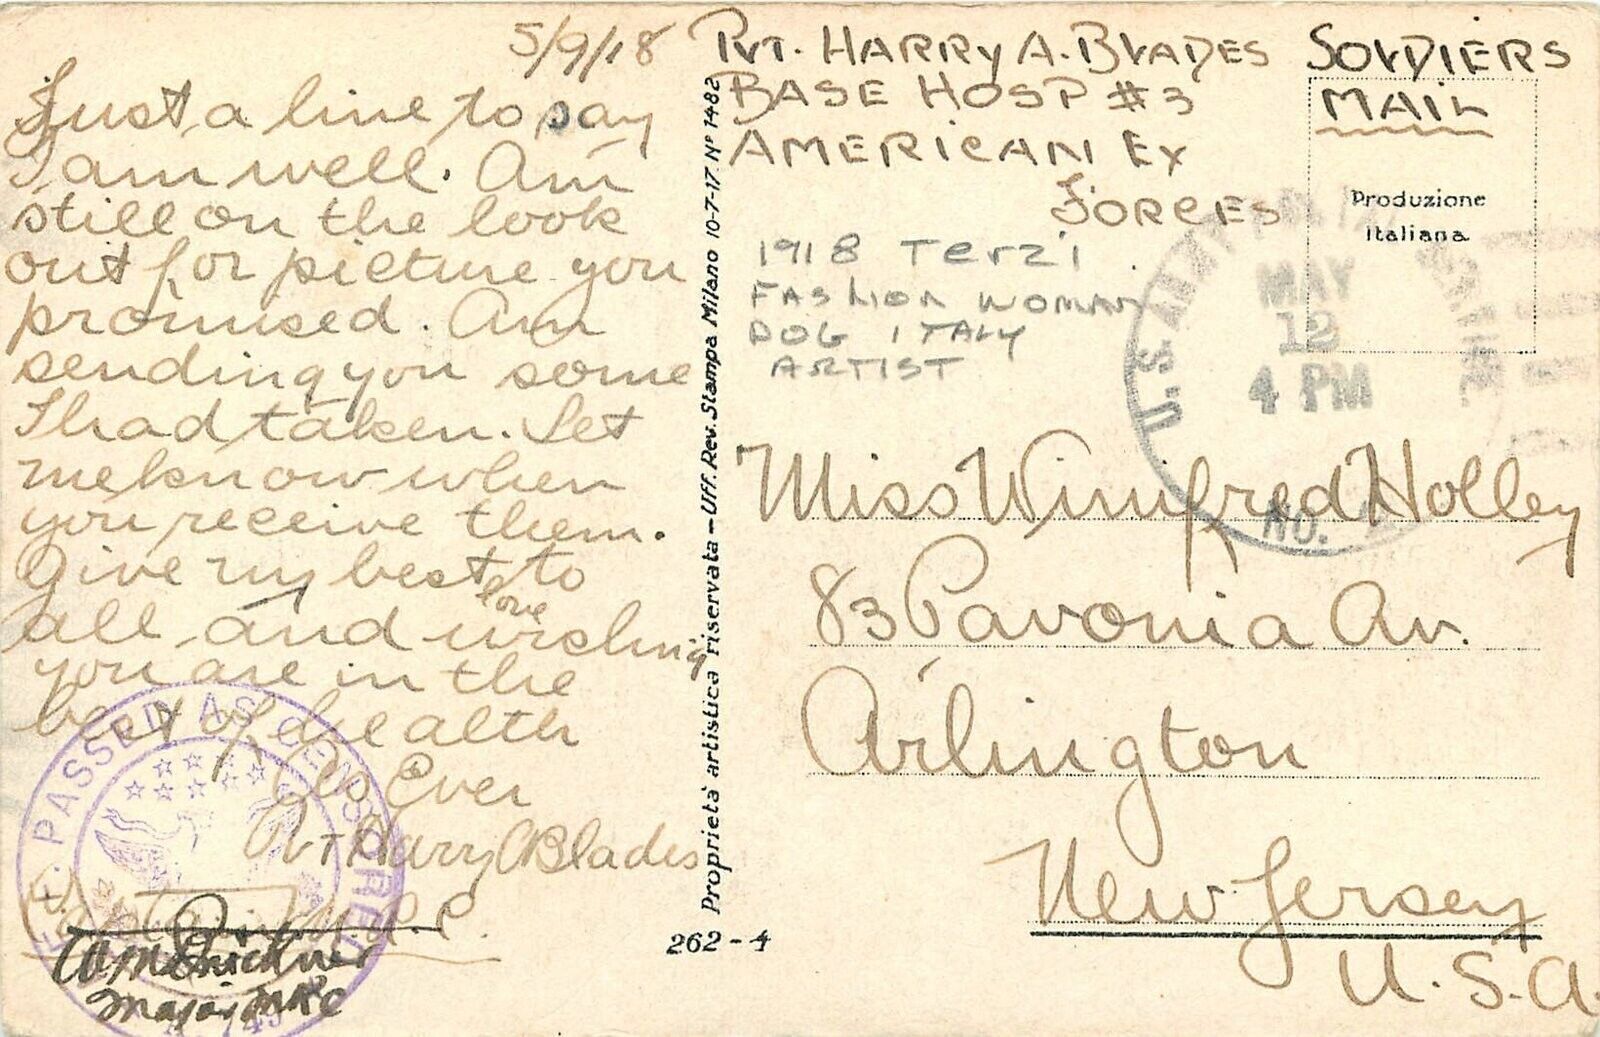 5/9/18
Just a line to say
I am well. Am
still on the look
out for picture you
promised. Am
sending you some
I had taken. Let
me know when
you receive them.
Give my best to
love
all and wishing
you are in the
best of health
As Ever
Pvt Harry A Blades
PASSED AS CENSORED
Major MRC
Proprietà artistica riservata - Uff. Rev. Stampa Milano 10-7-17. Nº 1482
262-4
Pvt. HARRY A. BLADES
BASE HOSP #3
AMERICAN EX
FORCES
SOLDIERS
MAIL
Produzione
Italiana
1918 Terzi
FASHION WOMAN
DOG ITALY
ARTIST
U.S. ARMY
MAY
12
4 PM
NO.
Miss Winifred Holley
83 Pavonia Av.
Arlington
New Jersey
U.S.A.